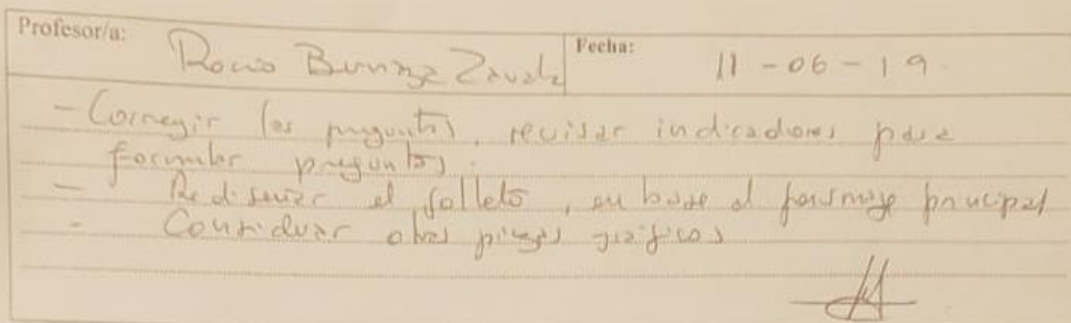 Profesor/a: Rocio Bunnze Zavala Fecha: 11-06-19.
- Corregir las preguntas, revisar indicadores para
formular preguntas.
- Rediseñar el folleto, en base al personaje principal
- Considerar otras piezas gráficas